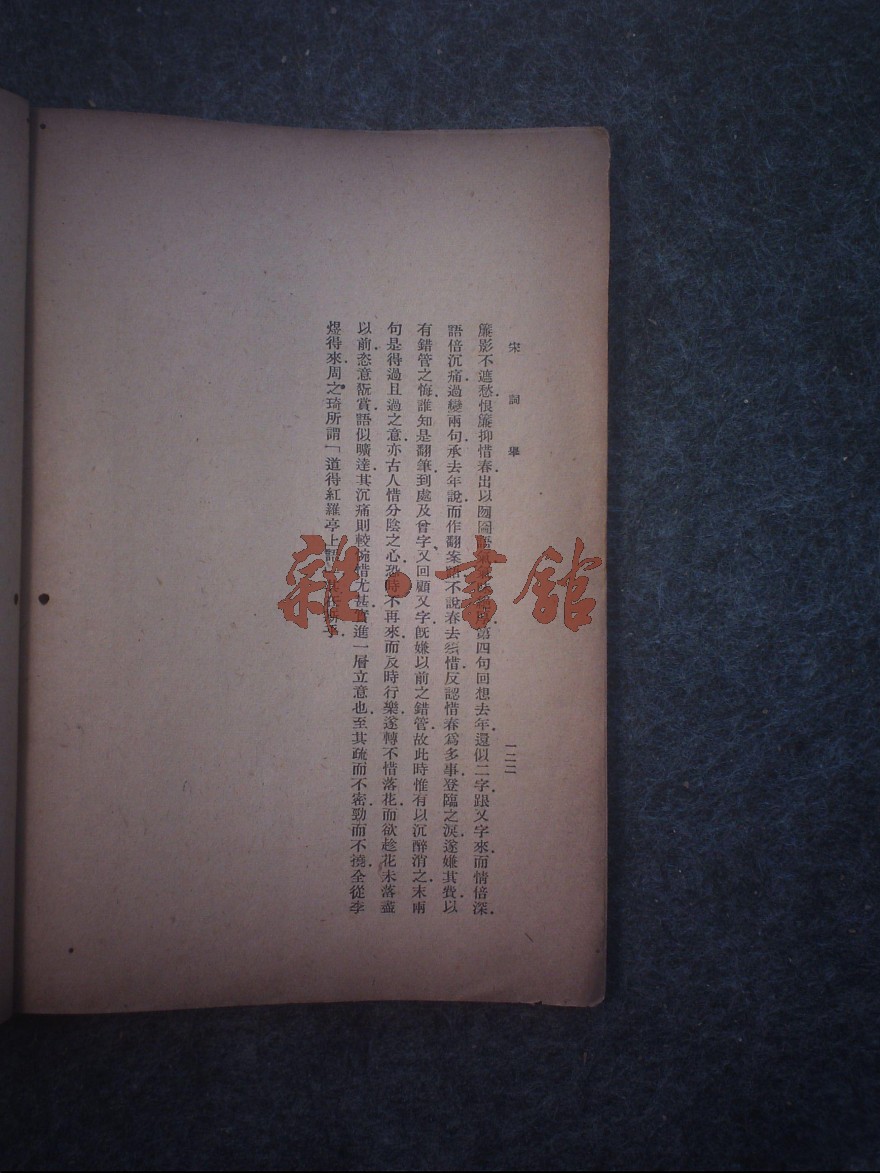 宋詞舉
一二二
簾影不遮愁．恨簾抑惜春．出以囫圇語氣 第四句回想去年．還似二字．跟又字來．而情倍深．
語倍沉痛．過變兩句．承去年說．而作翻案語．不說春去 惜．反認惜春爲多事．登臨之淚．遂嫌其費．以
有錯管之悔．誰知是翻筆．到處及曾字、又回顧又字．旣嫌以前之錯管．故此時惟有以沉醉消之．末兩
句是得過且過之意．亦古人惜分陰之心．恐時不再來．而及時行樂．遂轉不惜落花．而欲趁花未落盡
以前．恣意翫賞．語似曠達．其沉痛則較惋惜尤甚．實進一層立意也．至其疏而不密．勁而不撓．全從李
煜得來．周之琦所謂「道得紅羅亭上語 乎．
雜·書館